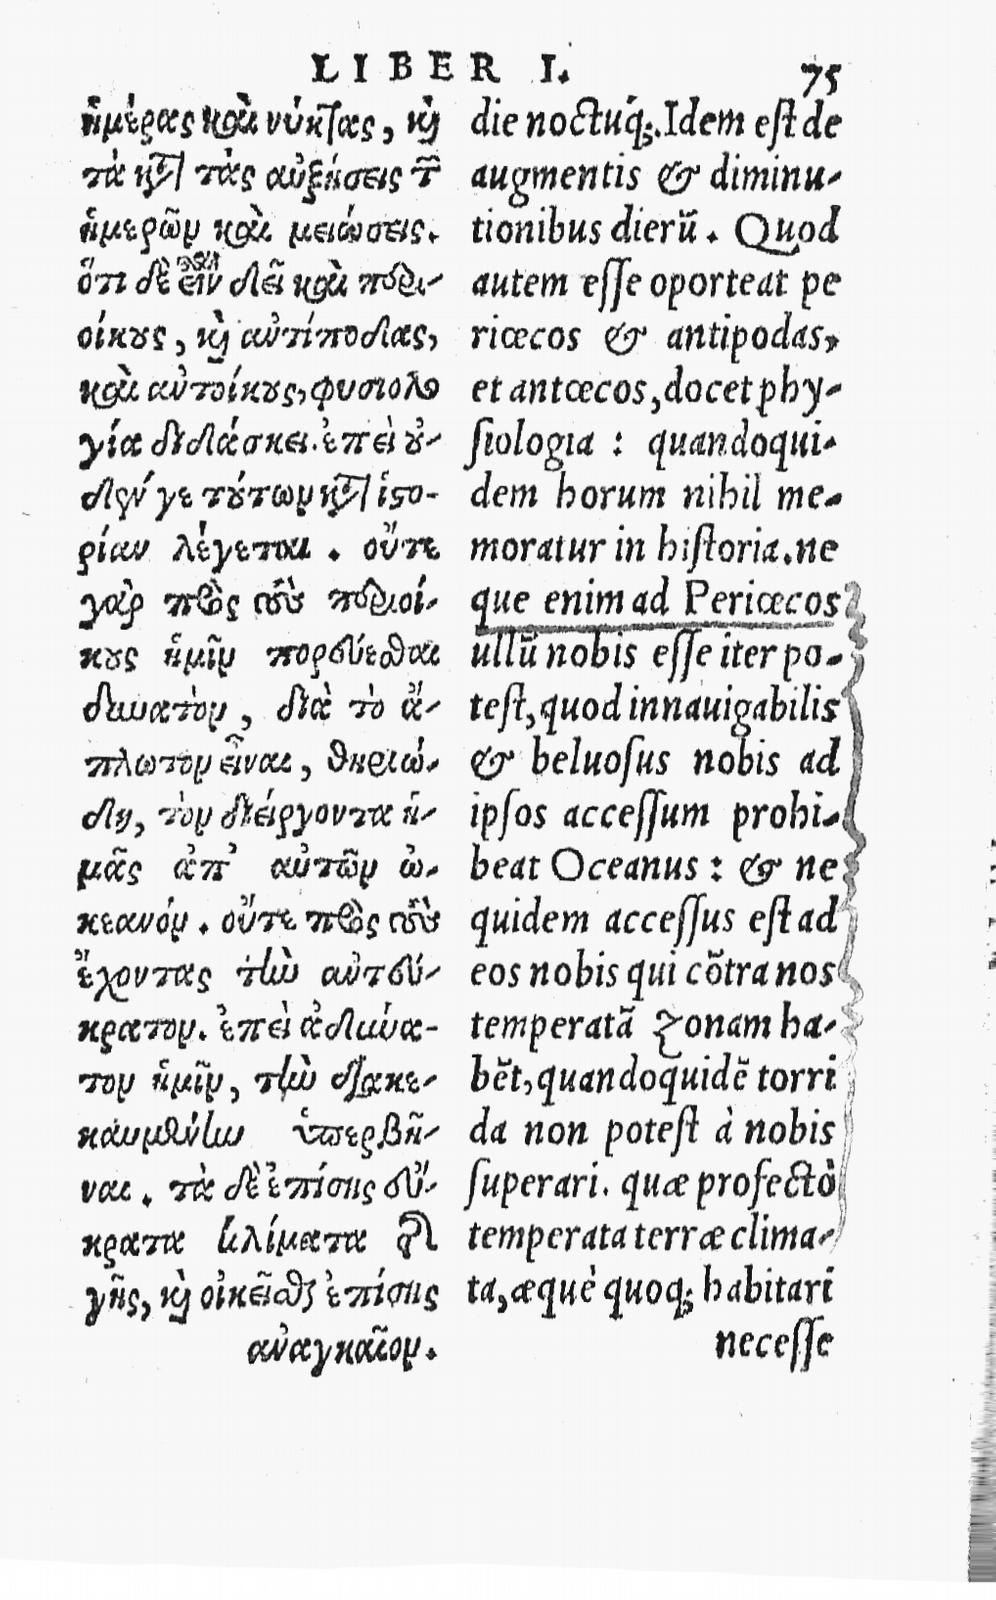 LIBER I. 75
ἡμέρας καὶ νύκτας, καὶ
τὰ κατὰ τὰς αὐξήσεις τῶν
ἡμερῶν καὶ μειώσεις.
ὅτι δὲ εἶναι δεῖ καὶ περι-
οίκους, καὶ ἀντίποδας,
καὶ ἀντοίκους, φυσιολο
γία διδάσκει. ἐπεὶ οὐ-
δέν γε τούτων κατὰ ἱστο-
ρίαν λέγεται. οὔτε
γὰρ πρὸς τοὺς περιοί-
κους ἡμῖν πορεύεσθαι
δυνατὸν, διὰ τὸ ἄ-
πλωτον εἶναι, θηριώ-
δη, τὸν διείργοντα ἡ-
μᾶς ἀπ’ αὐτῶν ὠ-
κεανόν. οὔτε πρὸς τοὺς
ἔχοντας τὴν ἀντεύ-
κρατον. ἐπεὶ ἀδύνα-
τον ἡμῖν, τὴν διακε-
καυμένην ὑπερβῆ-
ναι. τὰ δὲ ἐπίσης εὔ-
κρατα κλίματα τῆς
γῆς, καὶ οἰκεῖσθαι ἐπίσης
ἀναγκαῖον.
die noctuq́;. Idem eſt de
augmentis & diminu-
tionibus dierũ. Quod
autem eſſe oporteat pe
riœcos & antipodas,
et antœcos, docet phy-
ſiologia : quandoqui-
dem horum nihil me-
moratur in hiſtoria. ne
que enim ad Periœcos
ullũ nobis eſſe iter po-
teſt, quod innauigabilis
& beluoſus nobis ad
ipſos acceſſum prohi-
beat Oceanus : & ne
quidem acceſſus eſt ad
eos nobis qui cõtra nos
temperatã zonam ha-
bẽt, quandoquidẽ torri
da non poteſt à nobis
ſuperari. quæ profectò
temperata terræ clima-
ta, æquè quoq; habitari
neceſſe